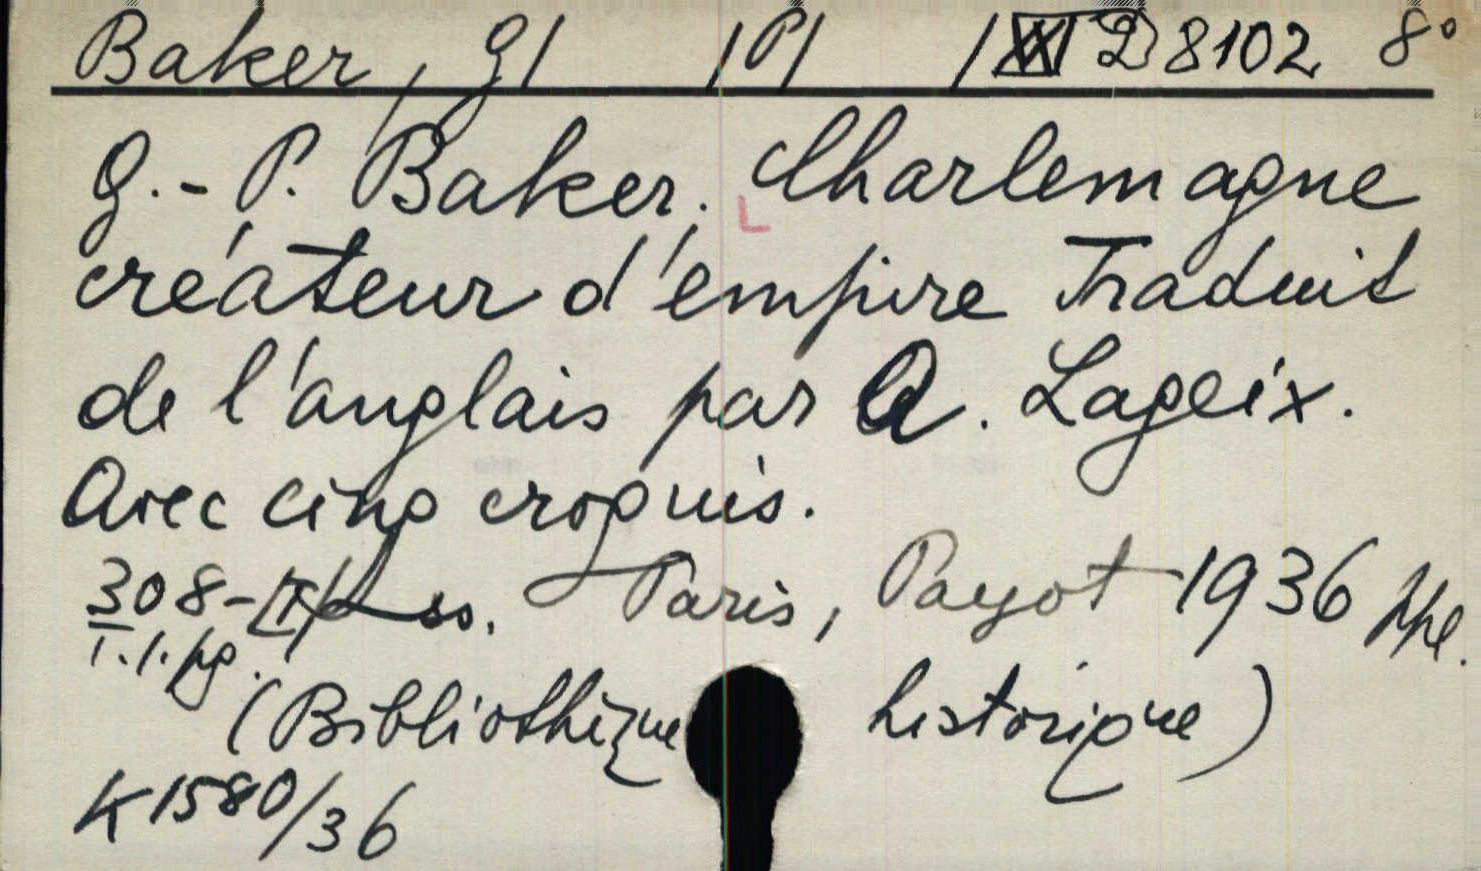 Baker, G/ /P/ / D 8102 8°
G.-P. Baker. Charlemagne
créateur d'empire Traduit
de l'anglais par A. Lageix.
Avec cinq croquis.
308- ss. Paris, Payot 1936
(Bibliothèque historique)
K 1580/36